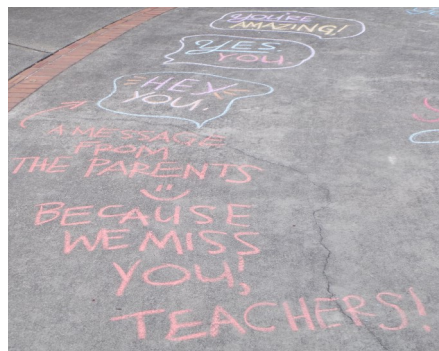 YOU'RE
AMAZING!
YES
YOU.
HEY
YOU.
A MESSAGE
FROM
THE PARENTS
BECAUSE
WE MISS
YOU!
TEACHERS!